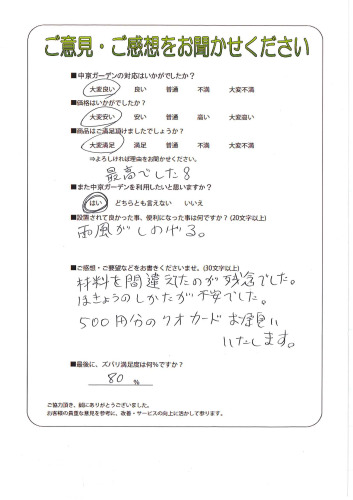 ご意見・ご感想をお聞かせください
■中京ガーデンの対応はいかがでしたか？
大変良い 良い 普通 不満 大変不満
■価格はいかがでしたか？
大変安い 安い 普通 高い 大変高い
■商品はご満足頂けましたでしょうか？
大変満足 満足 普通 不満 大変不満
⇒よろしければ理由をお聞かせください。
最高でした
■また中京ガーデンを利用したいと思いますか？
はい どちらとも言えない いいえ
■設置されて良かった事、便利になった事は何ですか？（20文字以上）
雨風がしのげる。
■ご感想・ご要望などをお書きくださいませ。（30文字以上）
材料を間違えたのが残念でした。
ほきょうのしかたが不安でした。
500円分のクオカードお願い
いたします。
■最後に、ズバリ満足度は何％ですか？
80 ％
ご協力頂き、誠にありがとうございました。
お客様の貴重な意見を参考に、改善・サービスの向上に活かして参ります。